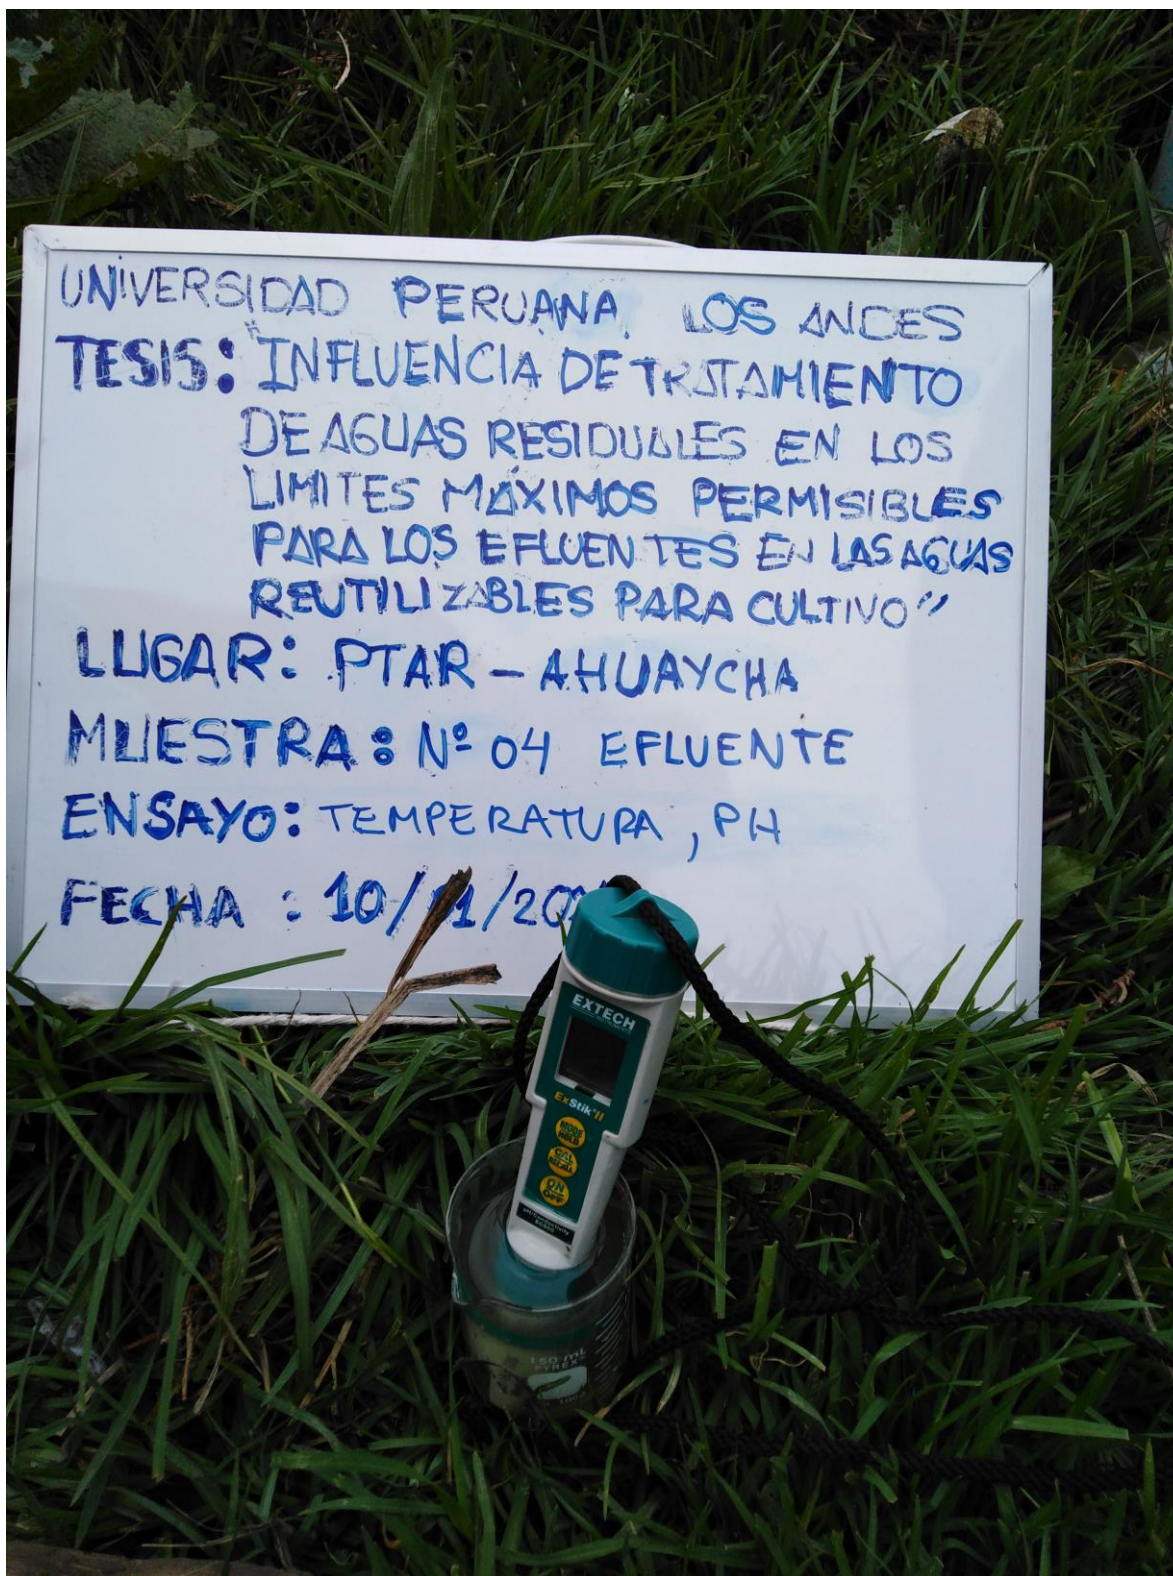 UNIVERSIDAD PERUANA LOS ANDES
TESIS: "INFLUENCIA DE TRATAMIENTO
DE AGUAS RESIDUALES EN LOS
LIMITES MÁXIMOS PERMISIBLES
PARA LOS EFLUENTES EN LAS AGUAS
REUTILIZABLES PARA CULTIVO"
LUGAR: PTAR - AHUAYCHA
MUESTRA: Nº 04 EFLUENTE
ENSAYO: TEMPERATURA, PH
FECHA : 10/
EXTECH
ExStik II
MODE HOLD
CAL RECALL
ON OFF
150 mL
PYREX